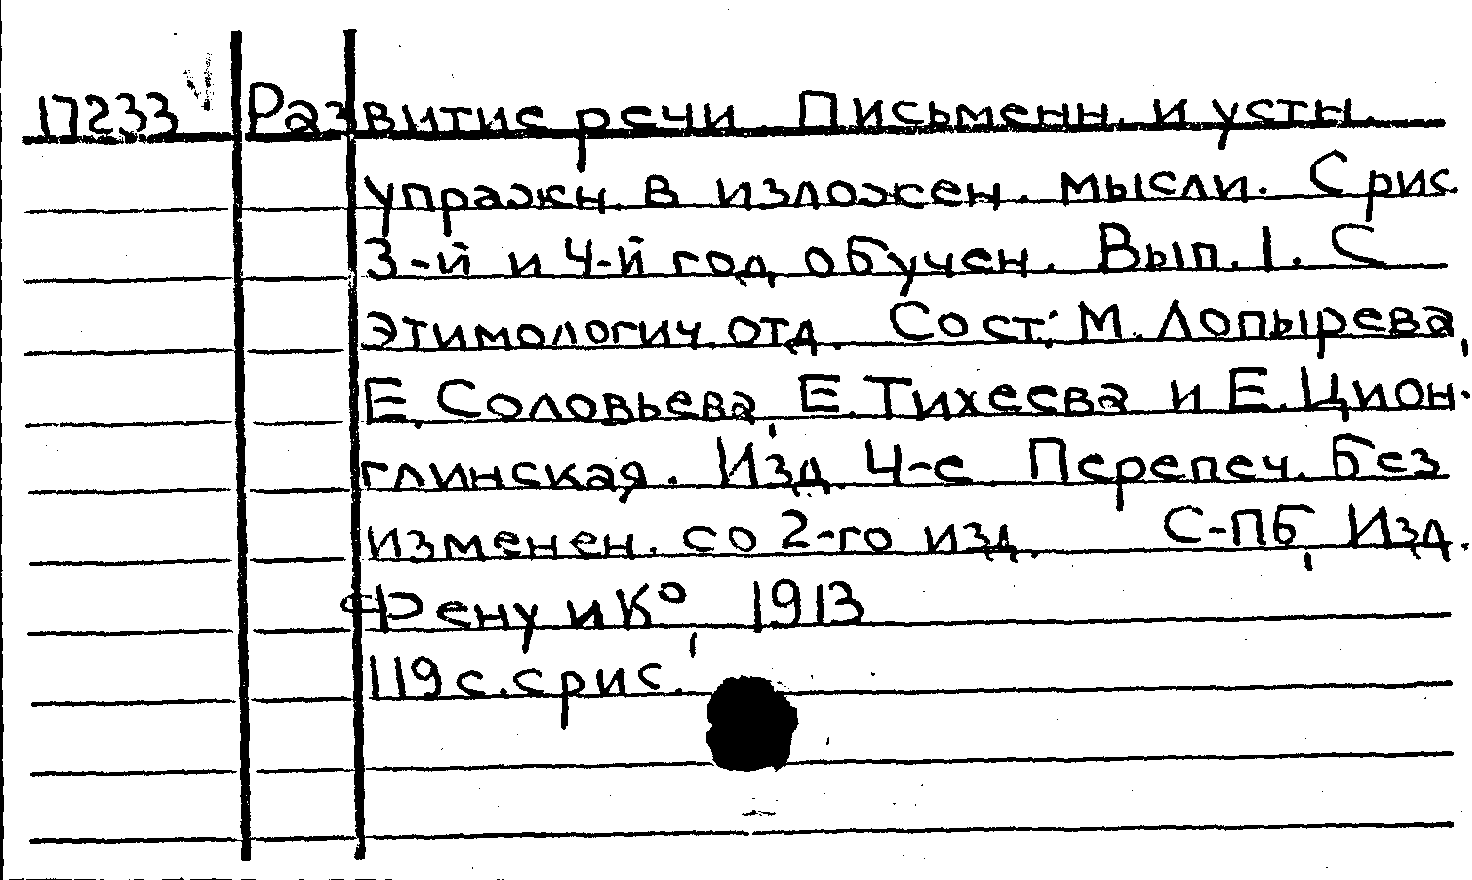 17233 Развитие речи. Письменн. и устн.
упражн. в изложен. мысли. С рис.
3-й и 4-й год обучен. Вып. 1. С
этимологич. отд. Сост.: М. Лопырева,
Е. Соловьева, Е. Тихеева и Е. Цион-
глинская. Изд. 4-е. Перепеч. без
изменен. со 2-го изд. С-ПБ, Изд.
Фену и К°, 1913
119 с. с рис.